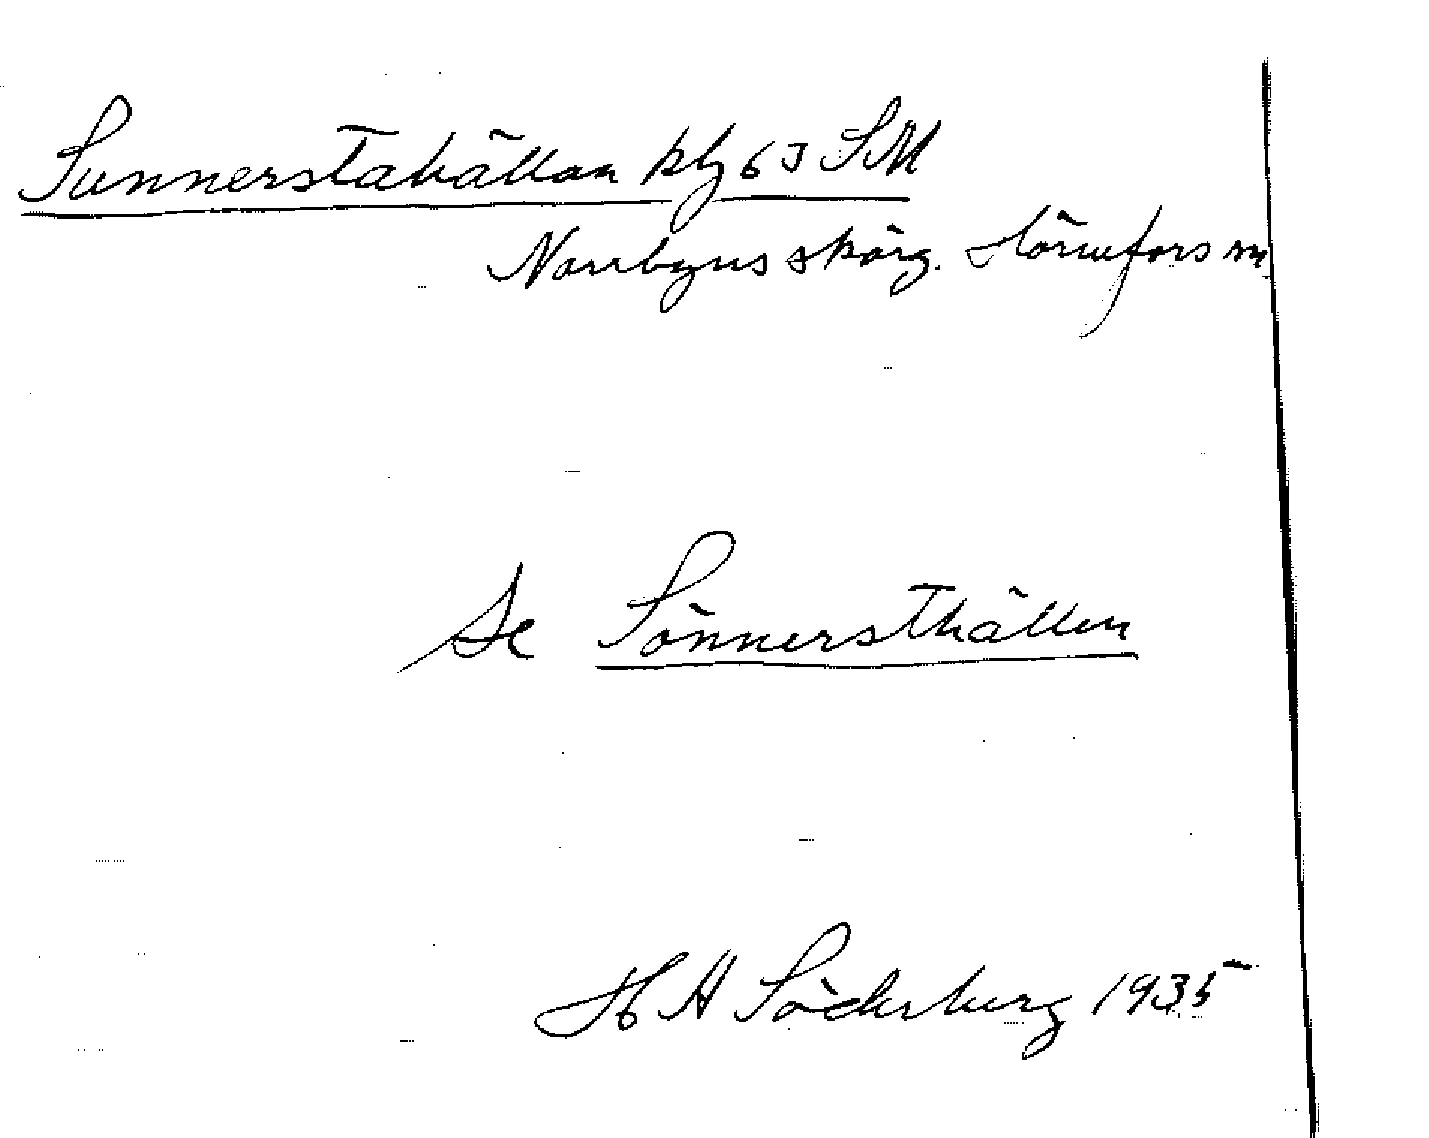 Sunnerstahällan klg 63 SM
Norrbyns skärg. Hörnefors sn
Se Sönnersthällen
H A Söderberg 1935